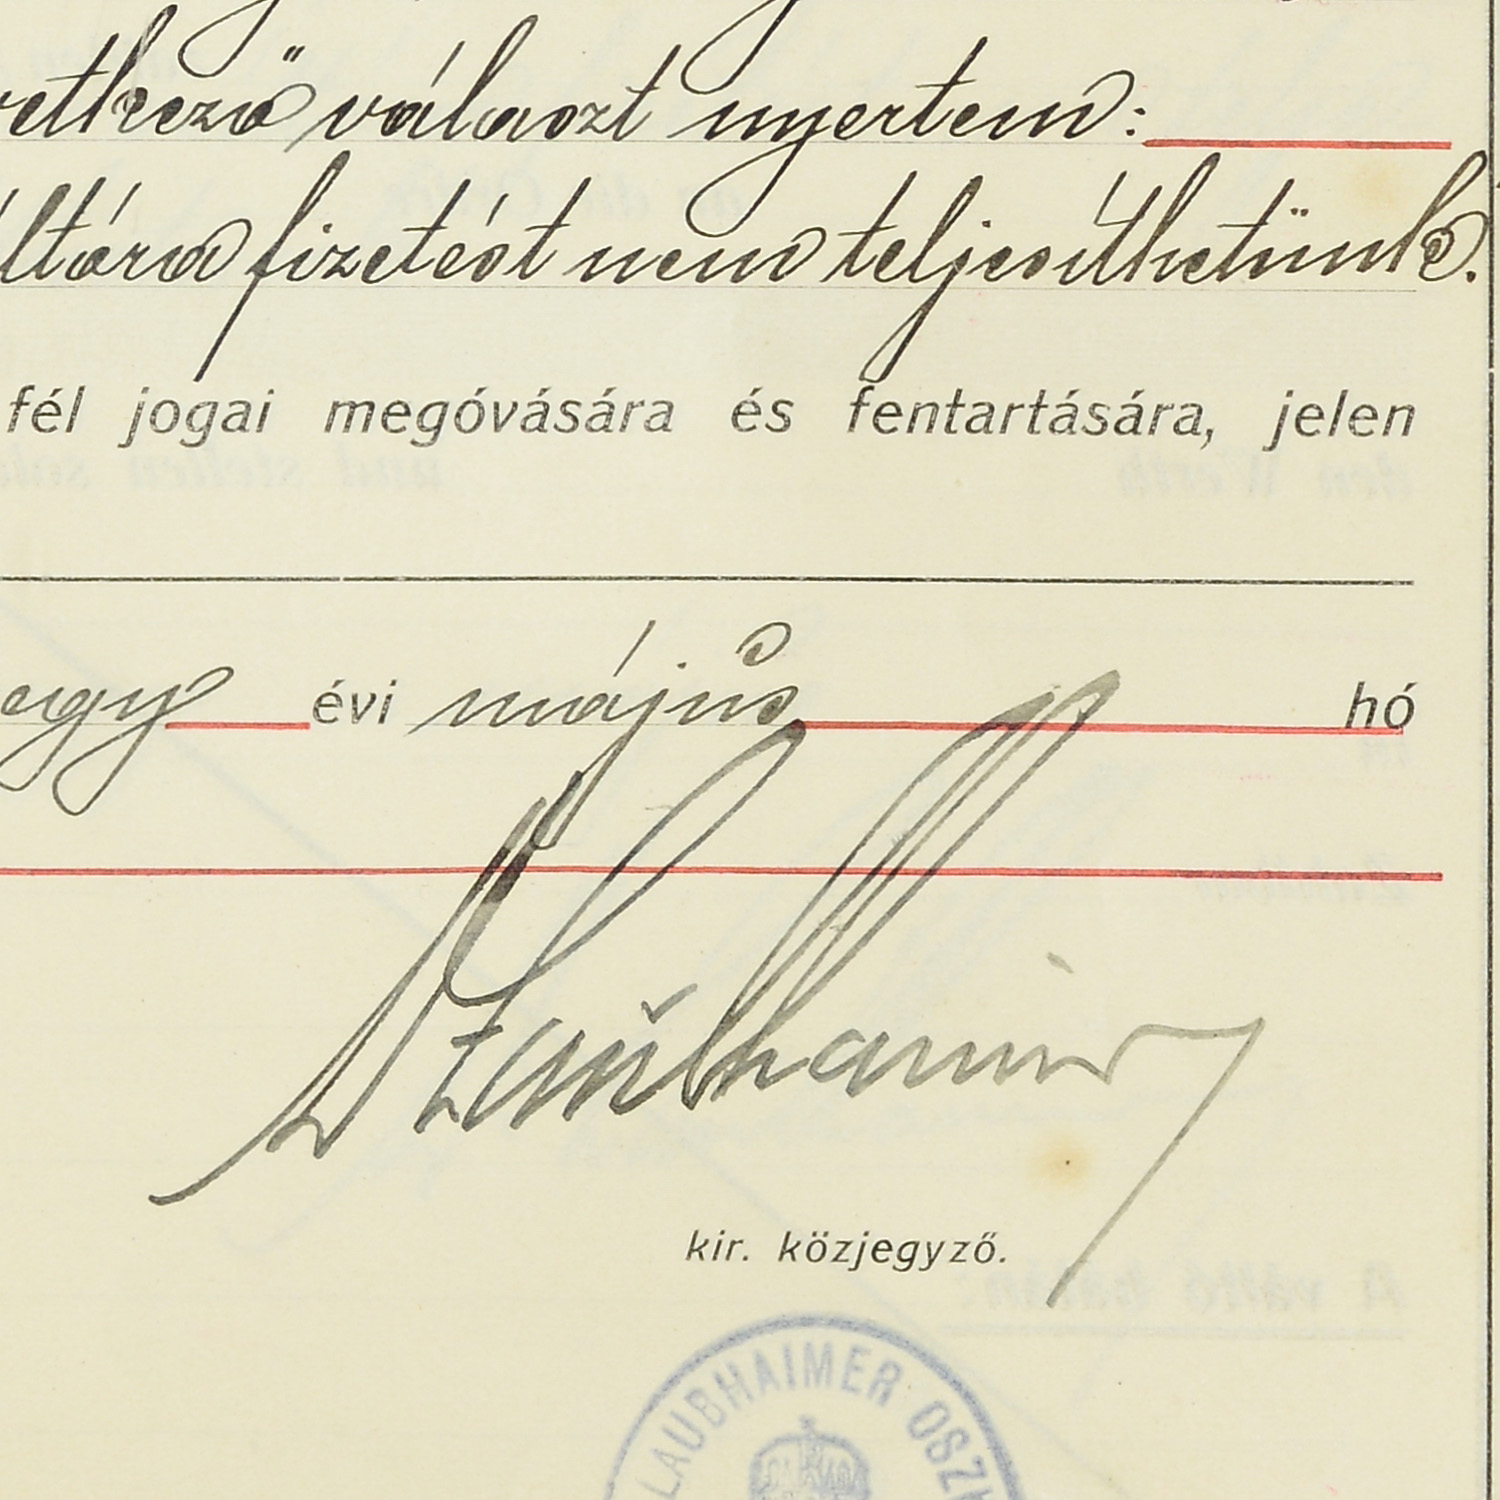 vetkező választ nyertem:
fizetést nem teljesíthetünk.
fél jogai megóvására és fentartására, jelen
egy évi május hó
kir. közjegyző.
LAUBHAIMER OSZK